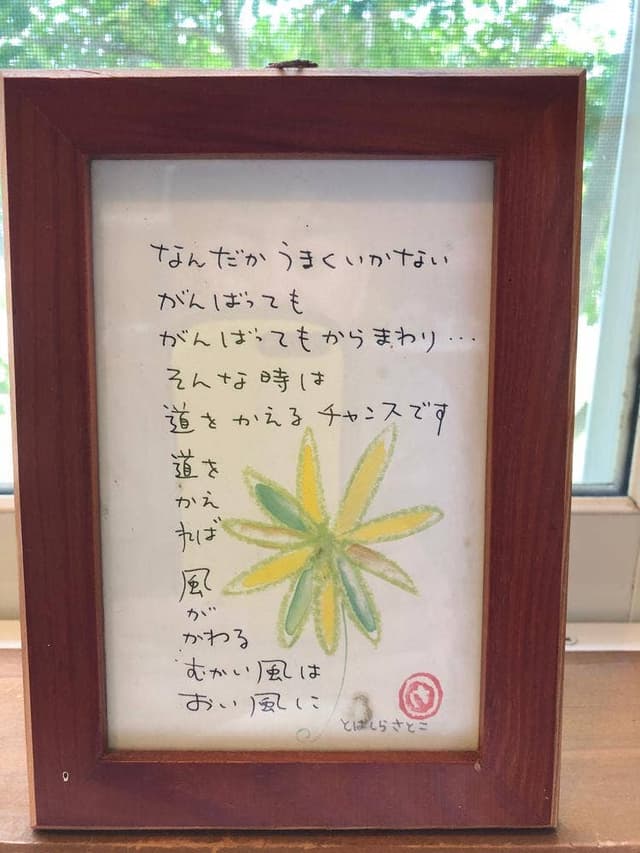 なんだかうまくいかない
がんばっても
がんばってもからまわり…
そんな時は
道をかえるチャンスです
道を
かえ
れば
風
が
かわる
むかい風は
おい風に
とばしらさとこ